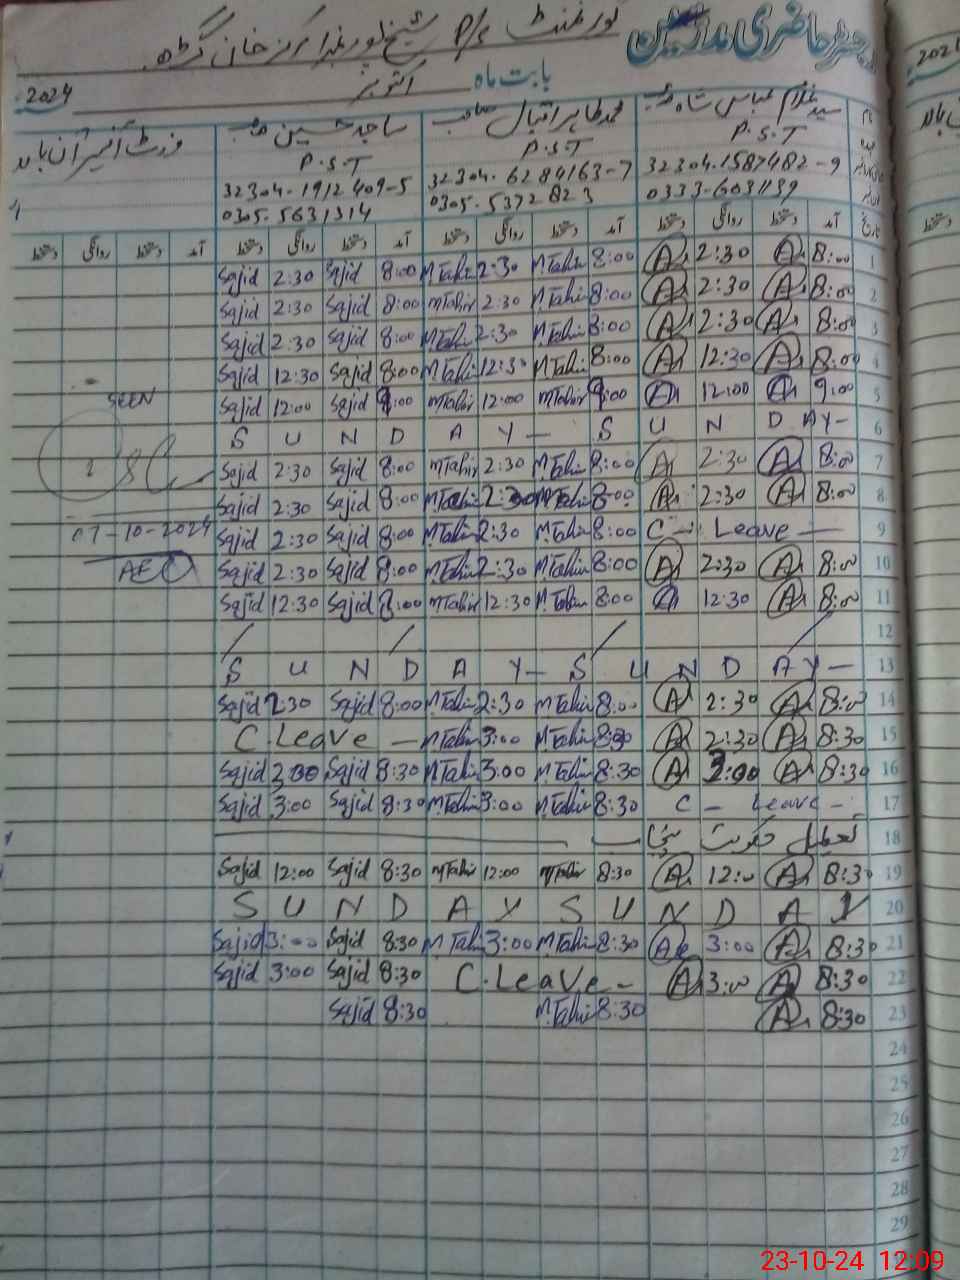 رجسٹر حاضری مدارسین
گورنمنٹ P/S شیخ
بابت ماہ اکتوبر 2024
سید غلام عباس شاہ صاحب محمد طاہر اقبال صاحب ساجد حسین صاحب
P.S.T P.S.T P.S.T
32304.1587482-9 32304.6284163-7 32304-1912409-5
0333-6031139 0305.5372823 0305.5631314
آمد دستخط روانگی دستخط آمد دستخط روانگی دستخط آمد دستخط روانگی دستخط آمد دستخط روانگی دستخط
Sajid 2:30 Sajid 8:00 M.Tahir 2:30 M.Tahir 8:00 A 2:30 A 8:00 1
Sajid 2:30 Sajid 8:00 M.Tahir 2:30 M.Tahir 8:00 A 2:30 A 8:00 2
Sajid 2:30 Sajid 8:00 M.Tahir 2:30 M.Tahir 8:00 A 2:30 A 8:00 3
Sajid 12:30 Sajid 8:00 M.Tahir 12:30 M.Tahir 8:00 A 12:30 A 8:00 4
SEEN
Sajid 12:00 Sajid 9:00 M.Tahir 12:00 M.Tahir 9:00 A 12:00 A 9:00 5
S U N D A Y - S U N D A Y - 6
Sajid 2:30 Sajid 8:00 M.Tahir 2:30 M.Tahir 8:00 A 2:30 A 8:00 7
Sajid 2:30 Sajid 8:00 M.Tahir 2:30 M.Tahir 8:00 A 2:30 A 8:00 8
07-10-2024 Sajid 2:30 Sajid 8:00 M.Tahir 2:30 M.Tahir 8:00 C - Leave - 9
AEO Sajid 2:30 Sajid 8:00 M.Tahir 2:30 M.Tahir 8:00 A 2:30 A 8:00 10
Sajid 12:30 Sajid 8:00 M.Tahir 12:30 M.Tahir 8:00 A 12:30 A 8:00 11
12
S U N D A Y - S U N D A Y - 13
Sajid 2:30 Sajid 8:00 M.Tahir 2:30 M.Tahir 8:00 A 2:30 A 8:00 14
C.Leave - M.Tahir 3:00 M.Tahir 8:30 A 2:30 A 8:30 15
Sajid 3:00 Sajid 8:30 M.Tahir 3:00 M.Tahir 8:30 A 3:00 A 8:30 16
Sajid 3:00 Sajid 8:30 M.Tahir 3:00 M.Tahir 8:30 C - Leave - 17
تعطیل حکومت پنجاب 18
Sajid 12:00 Sajid 8:30 M.Tahir 12:00 M.Tahir 8:30 A 12:00 A 8:30 19
S U N D A Y S U N D A Y 20
Sajid 3:00 Sajid 8:30 M.Tahir 3:00 M.Tahir 8:30 A 3:00 A 8:30 21
Sajid 3:00 Sajid 8:30 C.Leave - A 3:00 A 8:30 22
Sajid 8:30 M.Tahir 8:30 A 8:30 23
24
25
26
27
28
29
23-10-24 12:09